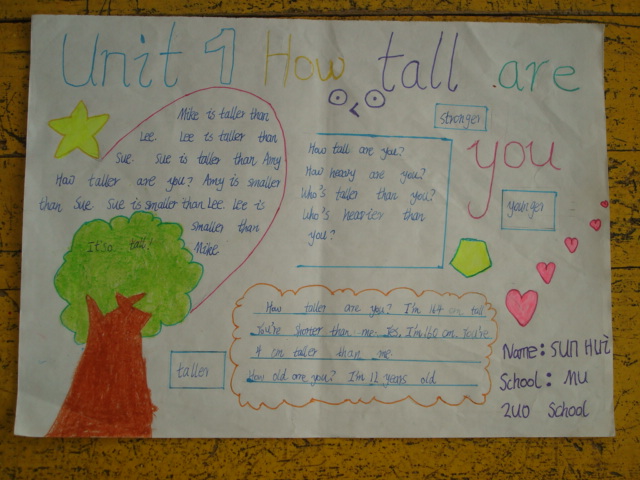 Unit 1 How tall are
you
stronger
younger
Mike is taller than
Lee. Lee is taller than
Sue. Sue is taller than Amy
How taller are you? Amy is smaller
than Sue. Sue is smaller than Lee Lee is
smaller than
Mike
It's tall!
How tall are you?
How heavy are you?
Who's taller than you?
Who's hearier than
you?
How taller are you? I'm 164 cm tall
You're shorter than me. Yes, I'm 160 cm. You're
4 cm taller than me
How old are you? I'm 12 years old
taller
Name: SUN HUI
School: MU
ZUO School